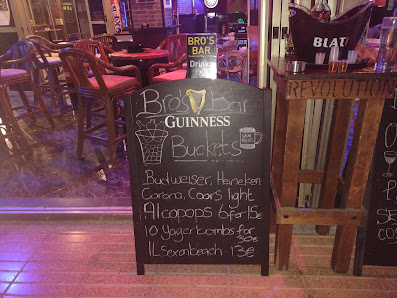 BRO'S
BAR
Drinks
BLAT
REVOLUTION
Bro's bar
GUINNESS
Buckets
Budweiser, Heineken
Corona, Coors light
Alcopops 6 for 15€
10 Yagerbombs for
30€
1L sexonbeach 13€